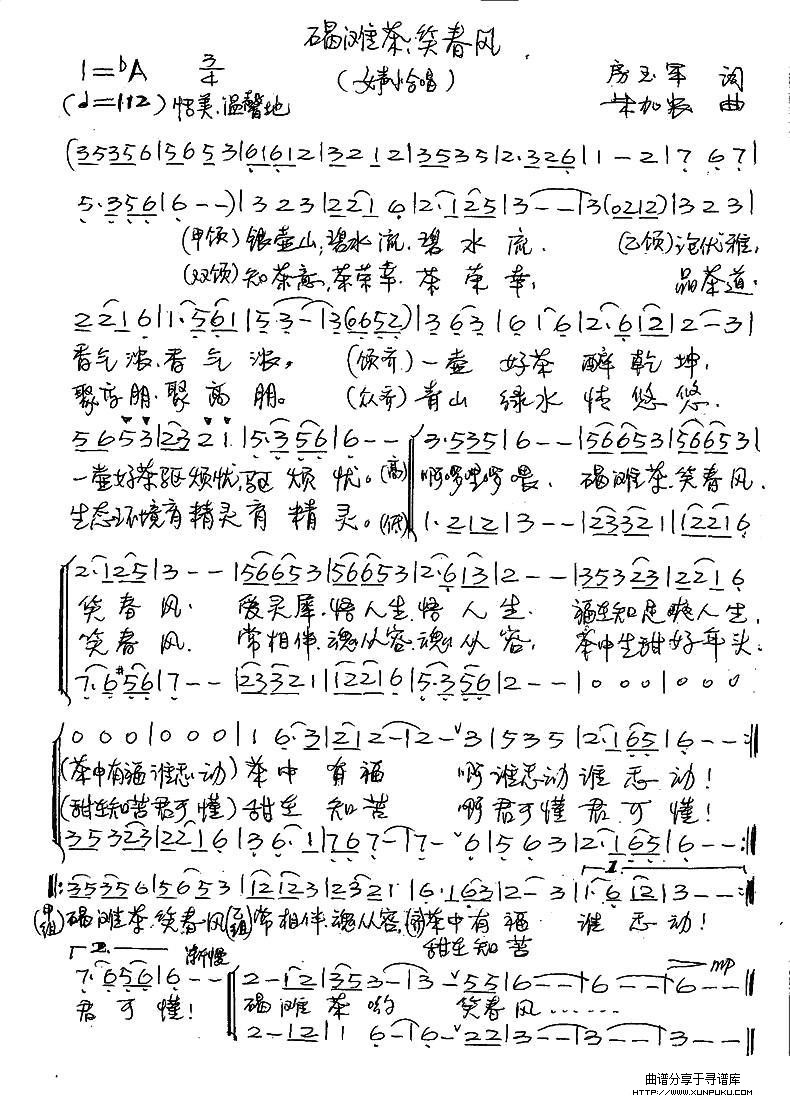 碣滩茶,笑春风
1=♭A 3/4 (女声小合唱) 房玉军 词
(♩=112) 恬美、温馨地 加农 曲
(35356|56053|61612|3212|35355|2·326|1-2|767|
5·356|6--)|323|2216|2·125|3--|3(0212)|323|
(甲领)银壶山,碧水流,碧水流. (乙领)沱优雅,
(双领)知茶意,茶荣幸,茶荣幸, 品茶道,
2216|1·561|53-|3(6652)|363|616|2·612|2-3|
香气浓,香气浓。 (领齐)一壶好茶醉乾坤,
聚高朋,聚高朋。 (众齐)青山绿水情悠悠.
5653|2321|5·356|6--|3·535|6--|56653|56653|
一壶好茶驱烦忧,驱烦忧。(高) 啊啰哩啰喂、碣滩茶,笑春风,
生态环境育精灵育精灵。(低) 1·212|3--|23321|12216
2·125|3--|56653|56653|2·613|2--|35323|2216
笑春风. 爱灵犀,悟人生,悟人生. 福至知足映人生,
笑春风. 常相伴,魂从容,魂从容, 茶中生甜好年头.
7·6#56|7--|23321|12216|5·356|2--|000|000
000|000|16·3|212-|2-3|535|2·165|6--:‖
(茶中有福谁悉动)茶中有福 啊谁悉动谁悉动!
(甜至知苦君可懂)甜至知苦 啊君可懂君可懂!
35323|2216|36·1|767-|7-6|563|2·165|6--:‖
‖:35356|56053|12123|2321|6·163|2-3|1·612|3--:‖
(甲组)碣滩茶,笑春风(乙组)常相伴,魂从容,(齐)茶中有福 谁悉动!
甜至知苦
2. 渐慢 mp
7·656|6--|2-12|3533-|3-55|6--|6--|6--‖
君可懂! 碣滩茶哟 笑春风……
2-12|16-|6-22|3--|3--|3--‖
曲谱分享于寻谱库
HTTP://WWW.XUNPUKU.COM